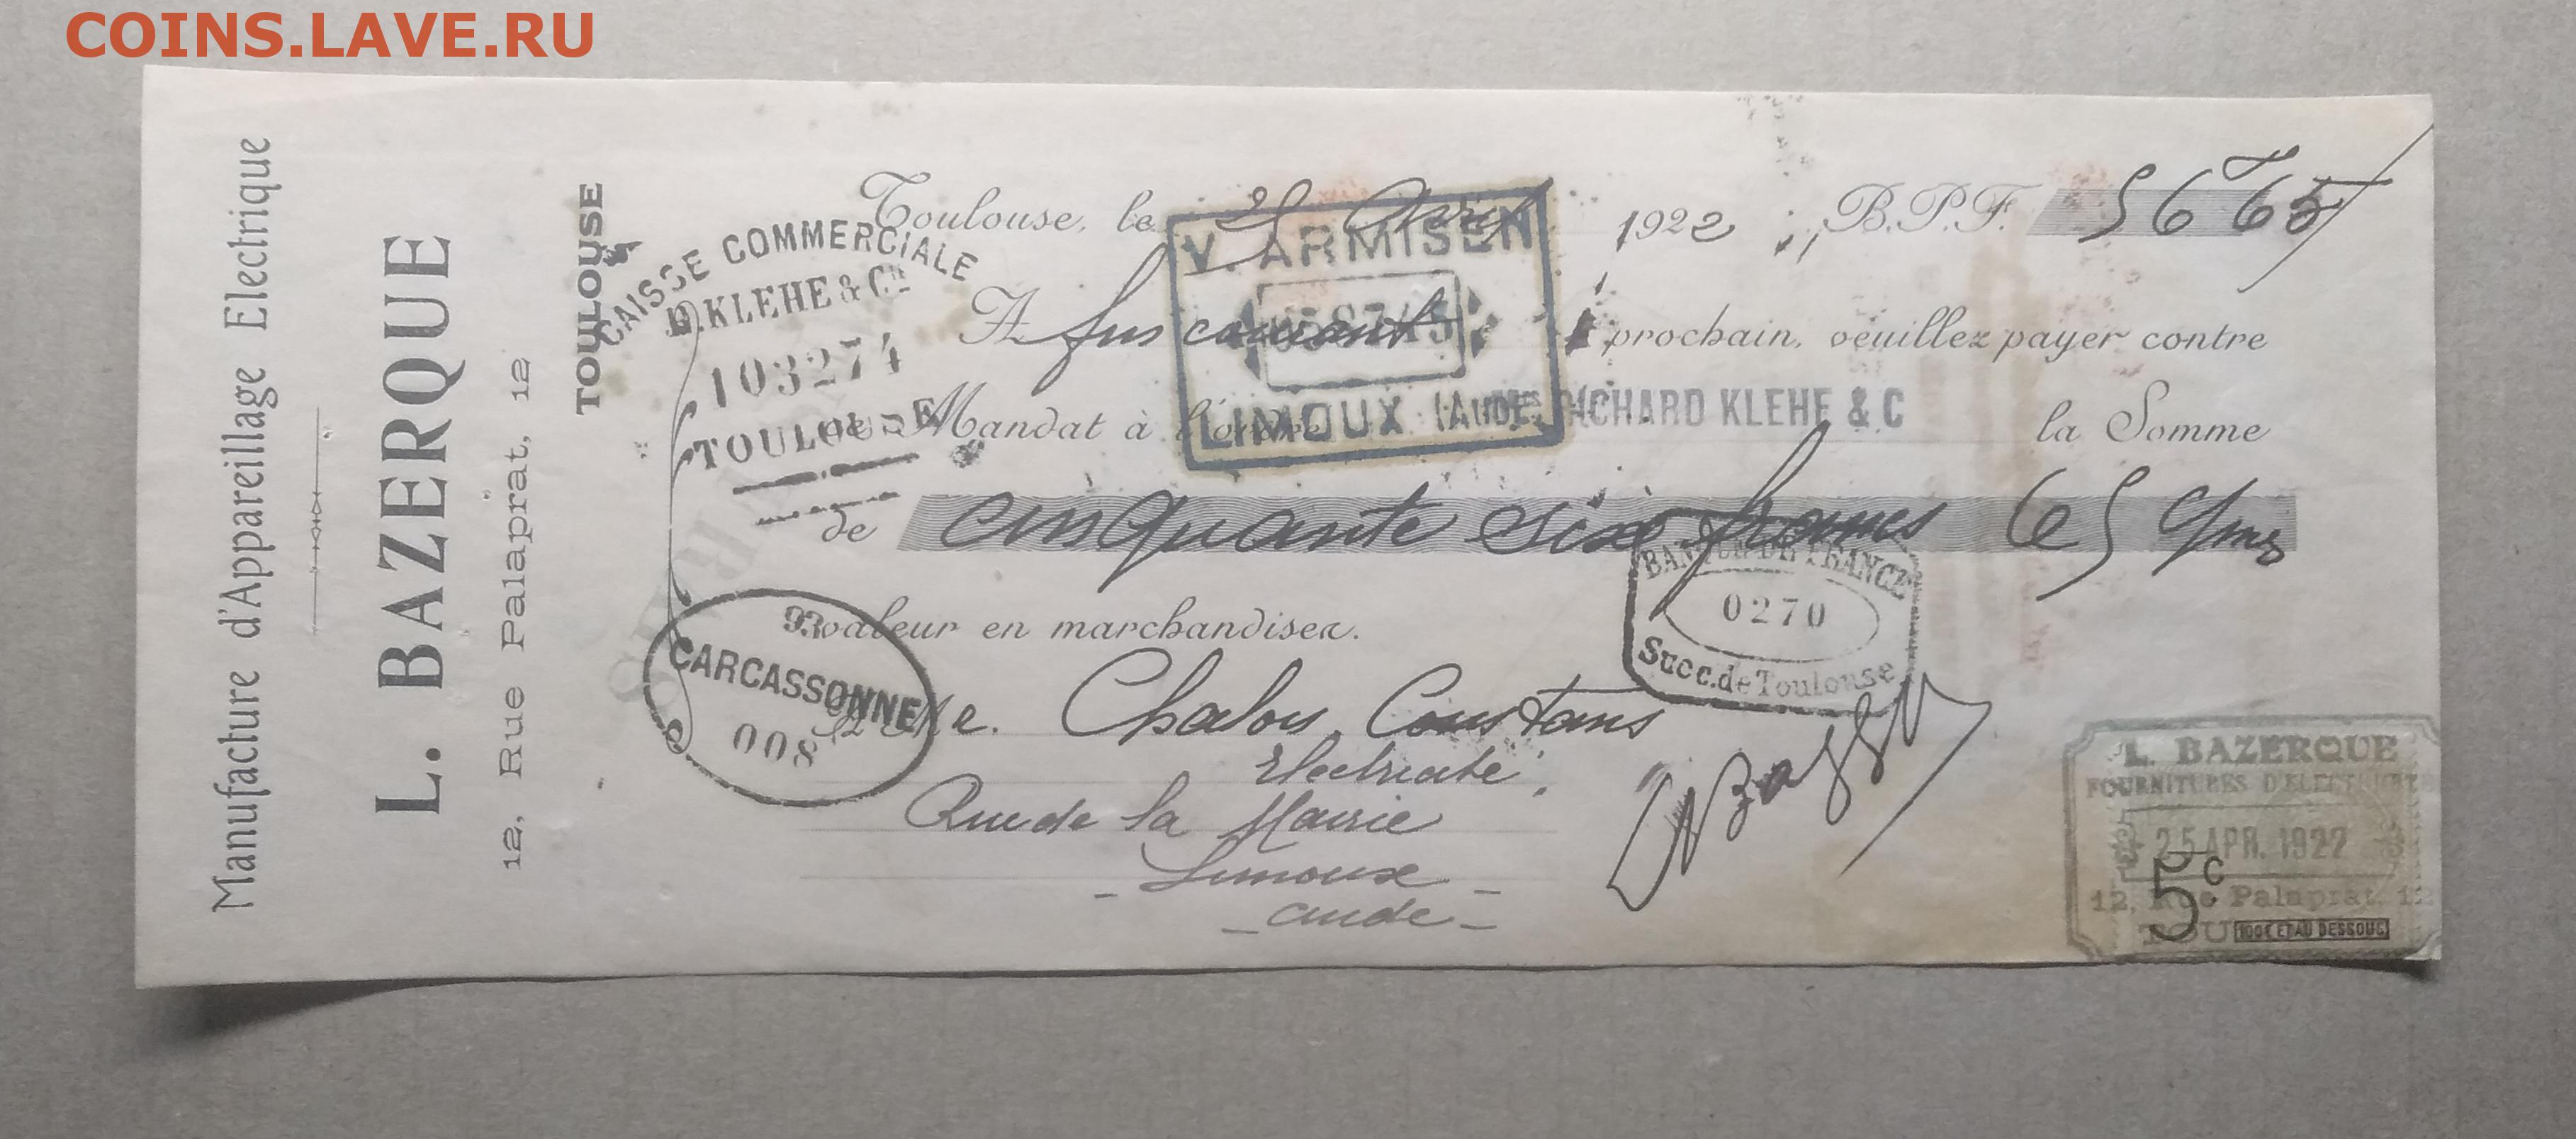 COINS.LAVE.RU
Manufacture d'Appareillage Electrique
L. BAZERQUE
12, Rue Palaprat, 12
TOULOUSE
CAISSE COMMERCIALE
KLEHE & Cie
103274
TOULOUSE
Toulouse, le 25 Avril 1922 B.P.F. 56 f 65
V. ARMISEN
LIMOUX (AUDE)
A fin courant prochain, veuillez payer contre
Mandat à l'ordre RICHARD KLEHE & C la Somme
de cinquante six francs 65 cmes
BANQUE DE FRANCE
0270
Succ. de Toulouse
93
CARCASSONNE
008
valeur en marchandises.
Chalois Constans
Electricité
Rue de la Mairie
- Limoux -
- Aude -
L. BAZERQUE
FOURNITURES D'ELECTRICITE
25 APR. 1922
5c
12, Rue Palaprat, 12
TOU
100f ET AU DESSOUS